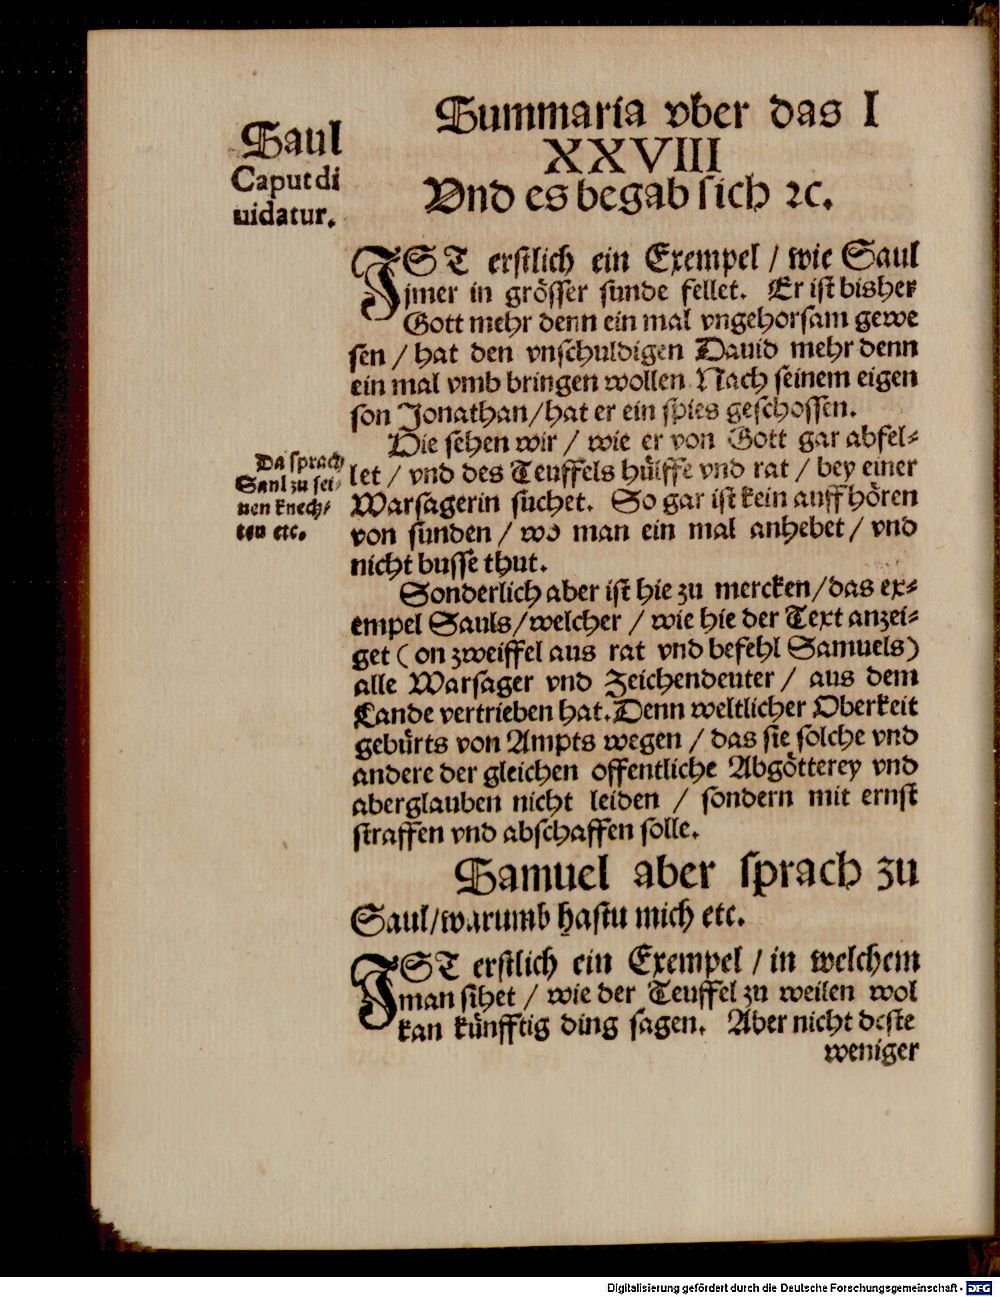 Summaria vber das I
XXVIII
Vnd es begab sich ꝛc.
Saul
Caput di
uidatur.
IST erstlich ein Exempel / wie Saul
jmer in grösser sunde fellet. Er ist bisher
Gott mehr denn ein mal vngehorsam gewe
sen / hat den vnschuldigen Dauid mehr denn
ein mal vmb bringen wollen Nach seinem eigen
son Jonathan/hat er ein spies geschossen.
Die sehen wir / wie er von Gott gar abfel⸗
let / vnd des Teuffels hülffe vnd rat / bey einer
Warsagerin suchet. So gar ist kein auffhören
von sunden / wo man ein mal anhebet / vnd
nicht busse thut.
Da sprach
Saul zu sei⸗
nen knech⸗
ten etc.
Sonderlich aber ist hie zu mercken/das ex⸗
empel Sauls/welcher / wie hie der Text anzei⸗
get (on zweiffel aus rat vnd befehl Samuels)
alle Warsager vnd Zeichendeuter / aus dem
Lande vertrieben hat. Denn weltlicher Oberkeit
gebürts von Ampts wegen / das sie solche vnd
andere der gleichen offentliche Abgötterey vnd
aberglauben nicht leiden / sondern mit ernst
straffen vnd abschaffen solle.
Samuel aber sprach zu
Saul/warumb hastu mich etc.
IST erstlich ein Exempel / in welchem
man sihet / wie der Teuffel zu weilen wol
kan künfftig ding sagen. Aber nicht deste
weniger
Digitalisierung gefördert durch die Deutsche Forschungsgemeinschaft - DFG